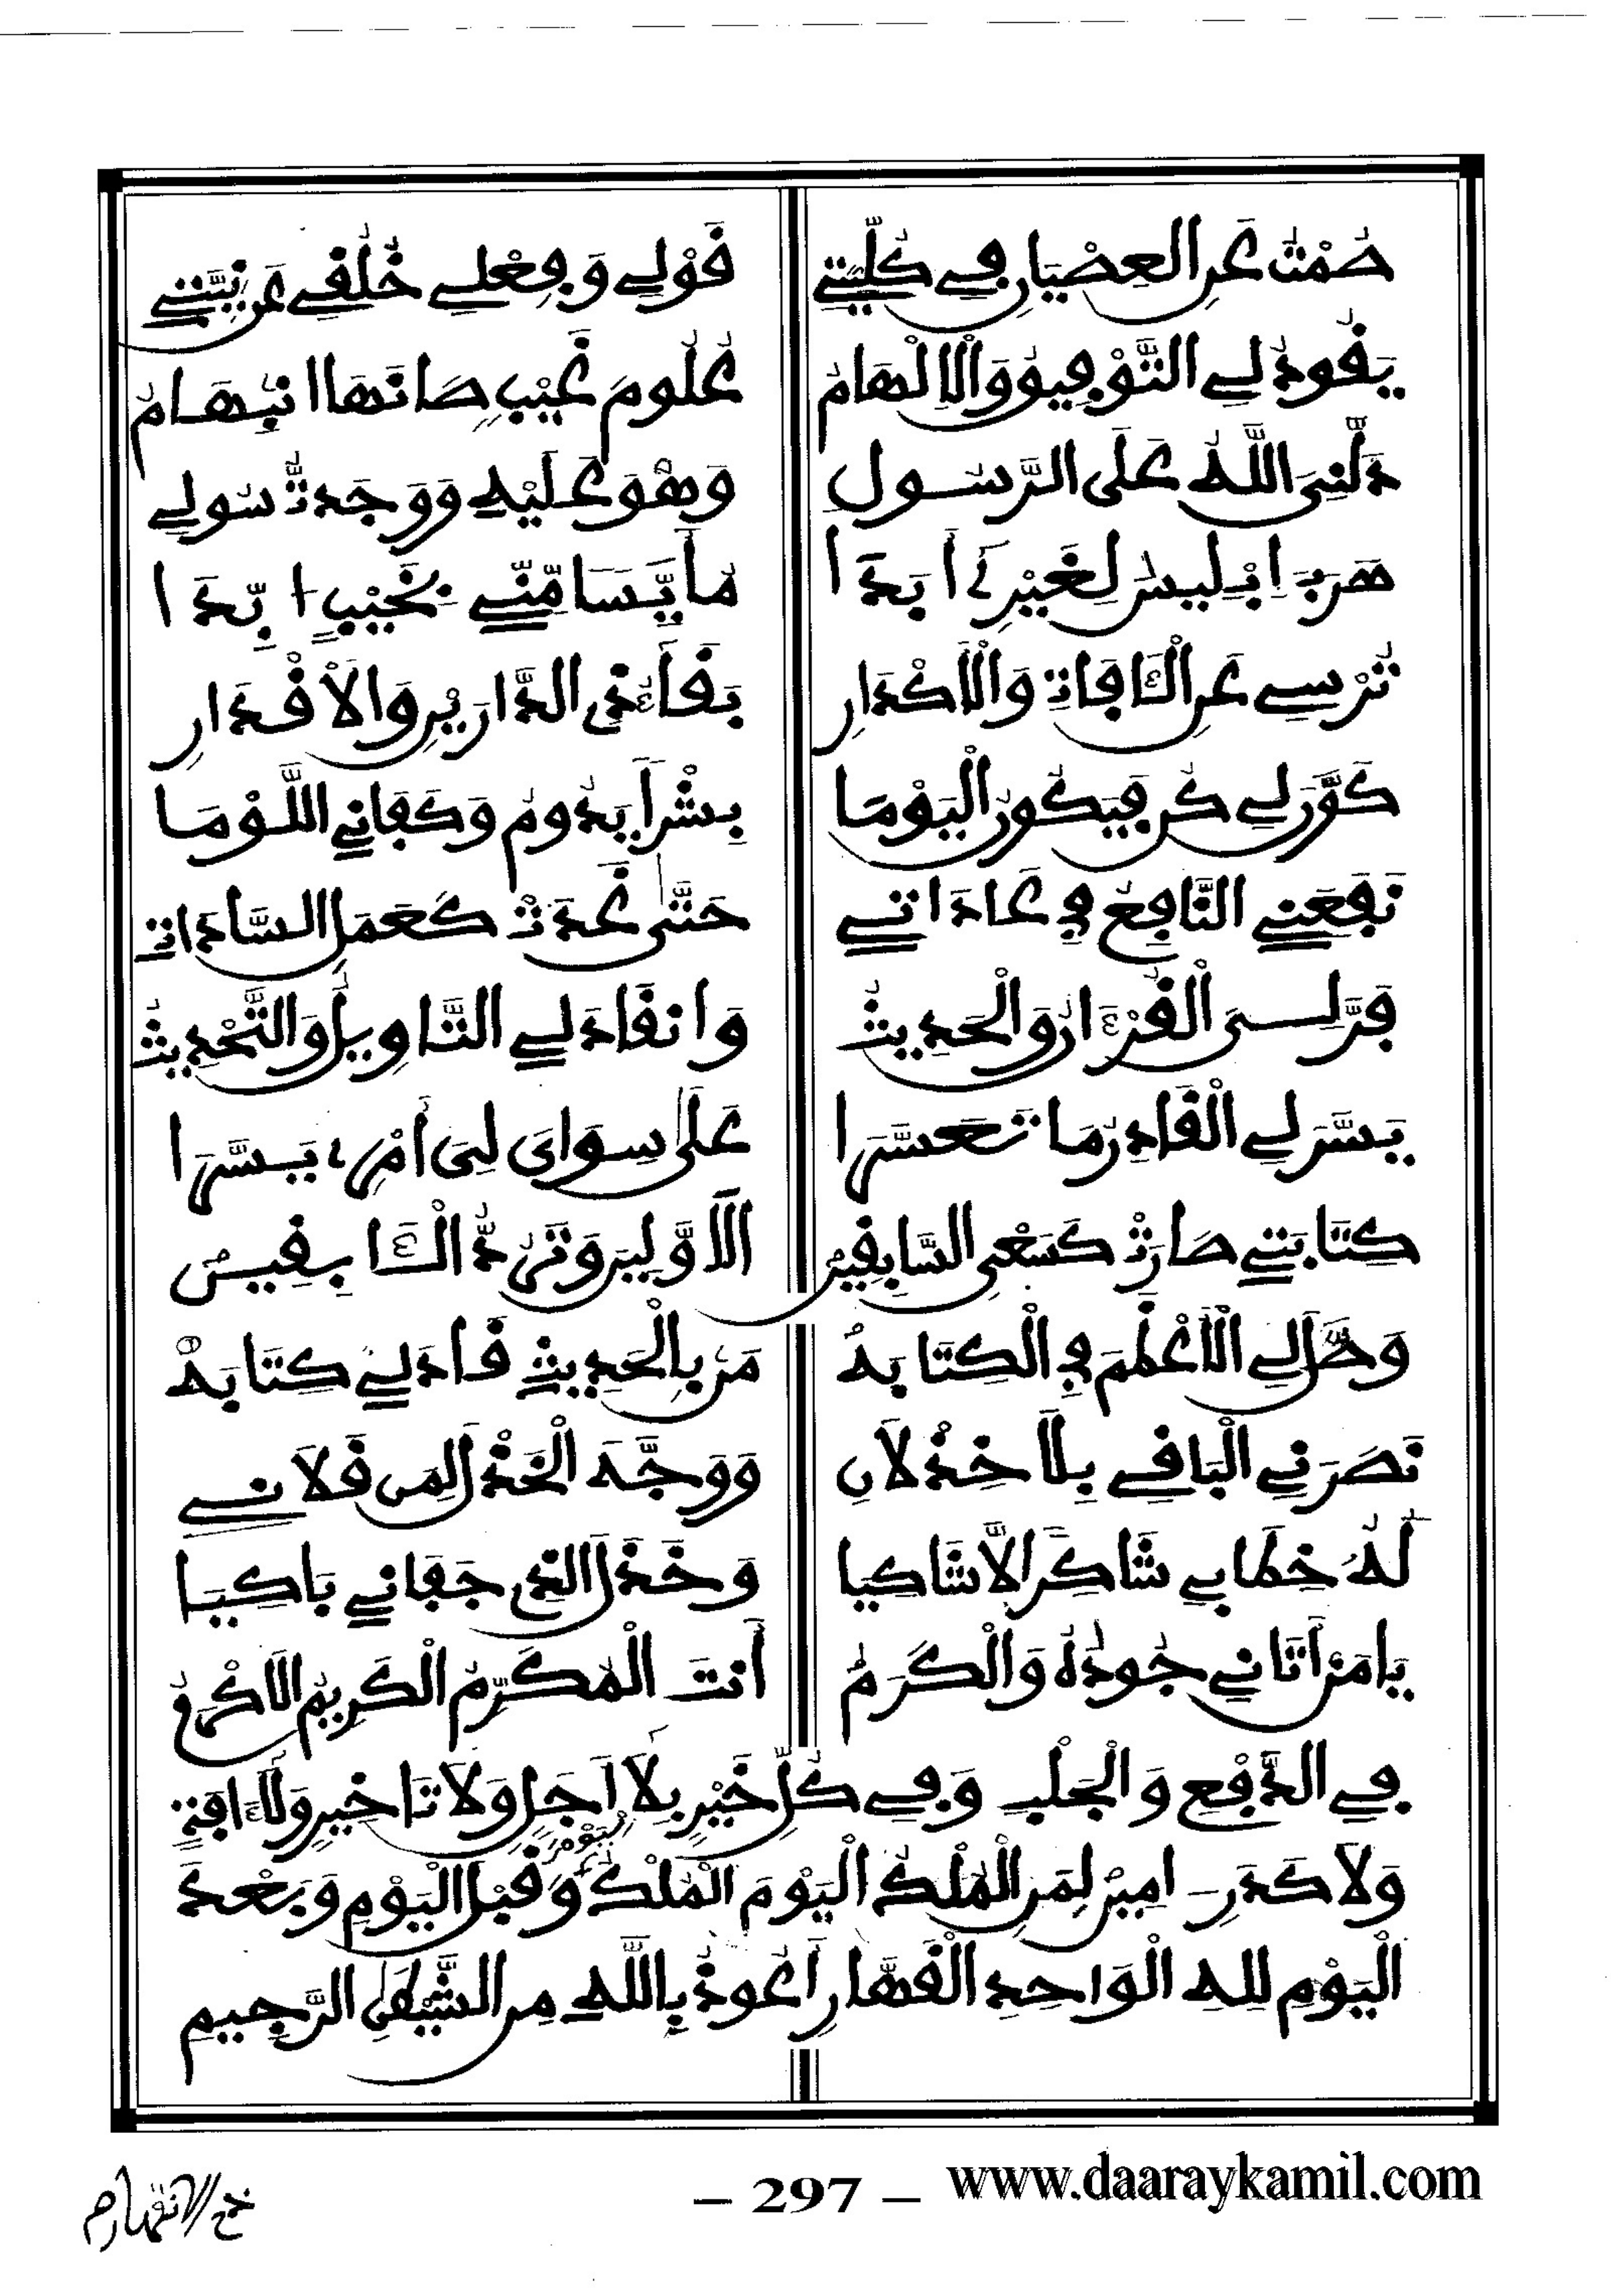 صُمْتُ عَنِ العِصْيَانِ فِي كُلِّيَّتِي قَوْلِي وَفِعْلِي خُلُقِي عَن نِيَّتِي
يَقُودُ لِي التَّوْفِيقُ وَالْإِلْهَامُ عُلُومَ غَيْبٍ صَانَهَا انْبِهَامُ
دَلَّنِيَ اللَّهُ عَلَى الرَّسُولِ وَهْوَ عَلَيْهِ وَوَجَدتُّ سُولِي
هَرَبَ إِبْلِيسُ لِغَيْرِي أَبَدَا مِّنِّي بِخَيْبٍ
تُرْسِي عَنِ الْآفَاتِ وَالْأَكْدَارِ بَقَاءُ ذِي الدَّارَيْنِ وَالْأَقْدَارِ
كَوَّنَ لِي كُن فَيَكُونُ الْيَوْمَا بِشْرًا يَدُومُ وَكَفَانِي اللَّوْمَا
نَفَعَنِي النَّافِعُ فِي عَادَاتِي حَتَّى غَدَتْ كَعَمَلِ السَّادَاتِ
قَرَّ لِيَ الْقُرْءَانُ وَالْحَدِيثُ وَانْقَادَ لِي التَّاوِيلُ وَالتَّحْدِيثُ
يَسَّرَ لِي الْقَادِرُ مَا تَعَسَّرَا عَلَى سِوَايَ لِيَ أَمْرِي يَسَّرَا
كِتَابَتِي صَارَتْ كَسَعْيِ السَّابِقِينْ الْأَوَّلِينَ وَتَرُدُّ الْآبِقِينْ
لِي الْأَعْظَمَ فِي الْكِتَابَهْ مَنْ بِالْحَدِيثِ قَادَ لِي كِتَابَهْ
نَصَرَنِي الْبَاقِي بِلَا خِذْلَانِ وَوَجَّهَ الْخَذْلَ لِمَن قَلَانِي
لَهُ خِطَابِي شَاكِرًا لَّا شَاكِيَا وَخَذَلَ الَّذِي جَفَانِي بَاكِيَا
يَا مَنْ أَتَانِي جُودُهُ وَالْكَرَمُ أَنْتَ الْمُكَرِّمُ الْكَرِيمُ الْأَكْرَمُ
فِي الدَّفْعِ وَالْجَلْبِ وَفِي كُلِّ خَيْرٍ بِلَا أَجَلٍ وَلَا تَاخِيرٍ وَلَا ءَافَةٍ
وَلَا كَدَرٍ امِينْ لِمَنِ الْمُلْكُ الْيَوْمَ الْمُلْكُ الْيَوْمَ وَقَبْلَ الْيَوْمِ وَبَعْدَ
الْيَوْمِ لِلهِ الْوَاحِدِ الْقَهَّارِ أَعُوذُ بِاللَّهِ مِنَ الشَّيْطَنِ الرَّجِيمِ
– 297 –
www.daaraykamil.com